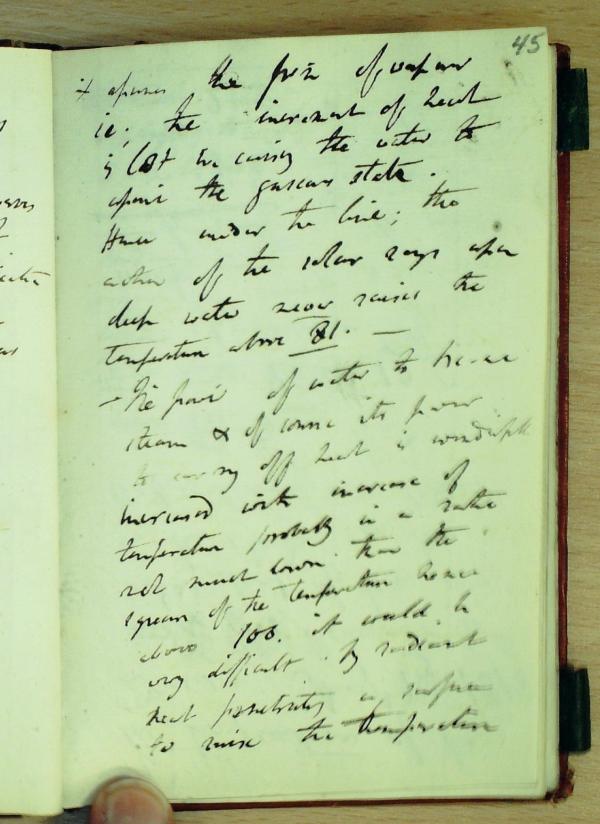 45
it assumes the form of vapour
ie; the increment of heat
is lost in causing the water to
assume the gaseous state.
Hence under the line; the
action of the solar rays upon
deep water never raises the
temperature above 81. —
– The power of water to become
steam & of course its power
to carry off heat is wonderfully
increased with increase of
temperature probably in a ratio
not much lower than the
squares of the temperature hence
above 100. it would be
very difficult by radiant
heat penetrating a surface
to raise the temperature